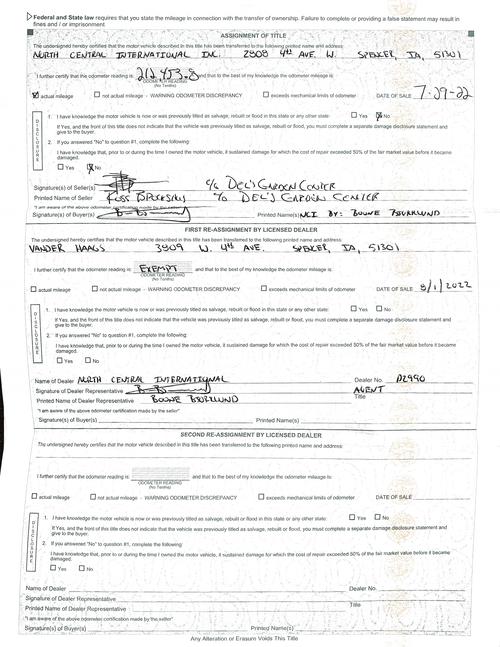 Federal and State law requires that you state the mileage in connection with the transfer of ownership. Failure to complete or providing a false statement may result in
fines and / or imprisonment.
ASSIGNMENT OF TITLE
The undersigned hereby certifies that the motor vehicle described in this title has been transferred to the following printed name and address:
NORTH CENTRAL INTERNATIONAL INC. 2808 4th AVE. W. SPENCER, IA, 51301
I further certify that the odometer reading is 212,453.8 and that to the best of my knowledge the odometer mileage is:
ODOMETER READING
(No Tenths)
actual mileage not actual mileage - WARNING ODOMETER DISCREPANCY exceeds mechanical limits of odometer DATE OF SALE 7-29-22
DISCLOSURE
1. I have knowledge the motor vehicle is now or was previously titled as salvage, rebuilt or flood in this state or any other state: Yes No
If Yes, and the front of this title does not indicate that the vehicle was previously titled as salvage, rebuilt, or flood, you must complete a separate damage disclosure statement and
give to the buyer.
2. If you answered "No" to question #1, complete the following:
I have knowledge that, prior to or during the time I owned the motor vehicle, it sustained damage for which the cost of repair exceeded 50% of the fair market value before it became
damaged.
Yes No
Signature(s) of Seller(s) c/o DEL'S GARDEN CENTER
Printed Name of Seller ROSS c/o DEL'S GARDEN CENTER
"I am aware of the above odometer certification made by the seller"
Signature(s) of Buyer(s) Printed Name(s) NCI BY: BOONE BJORKLUND
FIRST RE-ASSIGNMENT BY LICENSED DEALER
The undersigned hereby certifies that the motor vehicle described in this title has been transferred to the following printed name and address:
VANDER HAAGS 3809 W. 4th AVE. SPENCER, IA, 51301
I further certify that the odometer reading is EXEMPT and that to the best of my knowledge the odometer mileage is:
ODOMETER READING
(No Tenths)
actual mileage not actual mileage - WARNING ODOMETER DISCREPANCY exceeds mechanical limits of odometer DATE OF SALE 8/1/2022
DISCLOSURE
1. I have knowledge the motor vehicle is now or was previously titled as salvage, rebuilt or flood in this state or any other state: Yes No
If Yes, and the front of this title does not indicate that the vehicle was previously titled as salvage, rebuilt, or flood, you must complete a separate damage disclosure statement and
give to the buyer.
2. If you answered "No" to question #1, complete the following:
I have knowledge that, prior to or during the time I owned the motor vehicle, it sustained damage for which the cost of repair exceeded 50% of the fair market value before it became
damaged.
Yes No
Name of Dealer NORTH CENTRAL INTERNATIONAL Dealer No. D2990
Signature of Dealer Representative AGENT
Printed Name of Dealer Representative BOONE BJORKLUND Title
"I am aware of the above odometer certification made by the seller"
Signature(s) of Buyer(s) Printed Name(s)
SECOND RE-ASSIGNMENT BY LICENSED DEALER
The undersigned hereby certifies that the motor vehicle described in this title has been transferred to the following printed name and address:
I further certify that the odometer reading is and that to the best of my knowledge the odometer mileage is:
ODOMETER READING
(No Tenths)
actual mileage not actual mileage - WARNING ODOMETER DISCREPANCY exceeds mechanical limits of odometer DATE OF SALE
DISCLOSURE
1. I have knowledge the motor vehicle is now or was previously titled as salvage, rebuilt or flood in this state or any other state: Yes No
If Yes, and the front of this title does not indicate that the vehicle was previously titled as salvage, rebuilt, or flood, you must complete a separate damage disclosure statement and
give to the buyer.
2. If you answered "No" to question #1, complete the following:
I have knowledge that, prior to or during the time I owned the motor vehicle, it sustained damage for which the cost of repair exceeded 50% of the fair market value before it became
damaged.
Yes No
Name of Dealer Dealer No.
Signature of Dealer Representative
Printed Name of Dealer Representative Title
"I am aware of the above odometer certification made by the seller"
Signature(s) of Buyer(s) Printed Name(s)
Any Alteration or Erasure Voids This Title